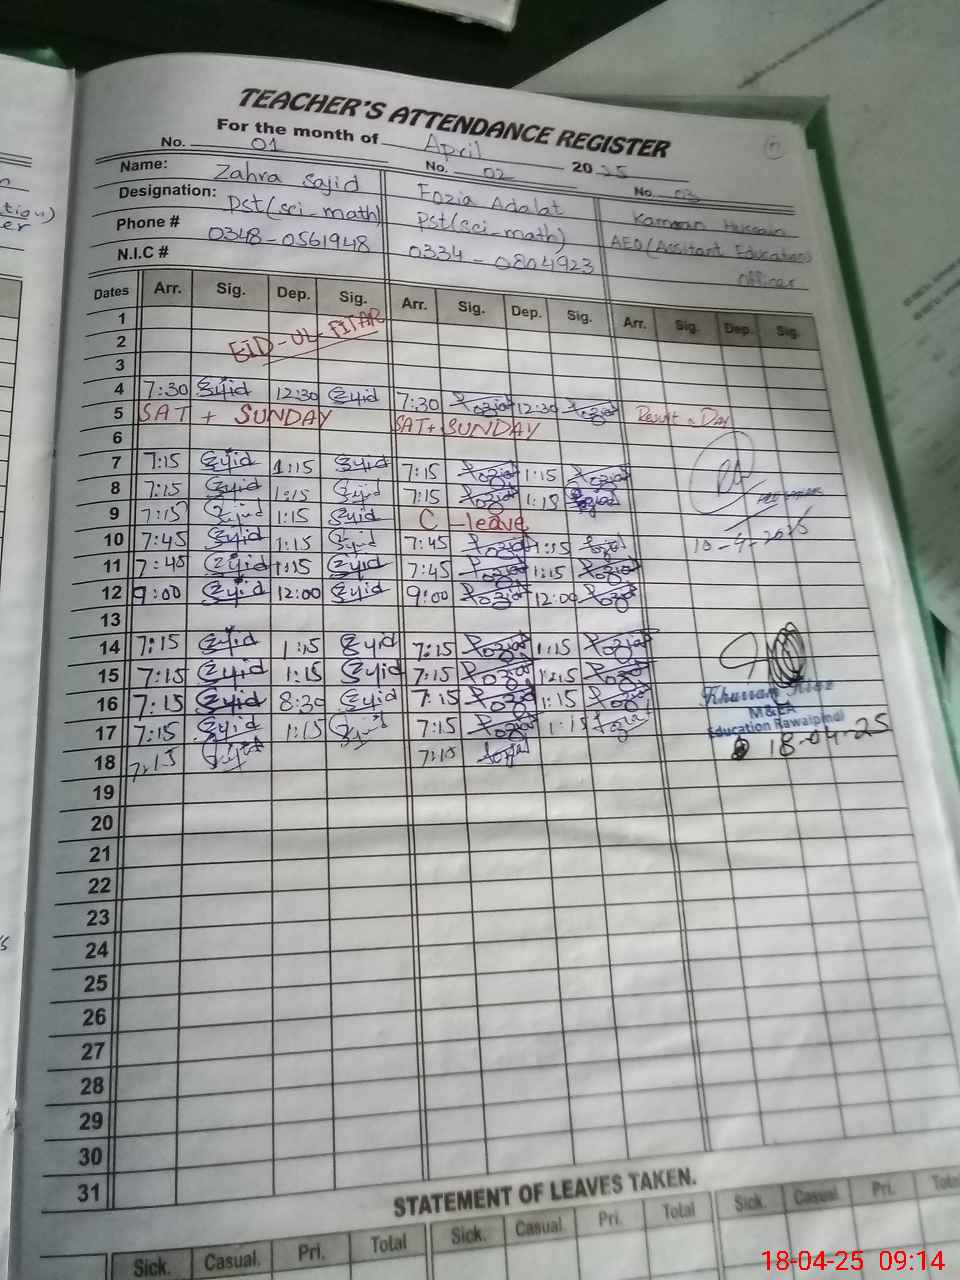 TEACHER'S ATTENDANCE REGISTER
For the month of April 2025
No. 01 No. 02 No. 03
Name: Zahra Sajid Fozia Adalat Kamran Hussain
Designation: Pst(sci_math) Pst(sci_math) AEO(Assitant Education officer
Phone # 0348-0561948 0334-0804923
N.I.C #
Dates Arr. Sig. Dep. Sig. Arr. Sig. Dep. Sig. Arr. Sig. Dep. Sig.
1
2 EID-UL-FITAR
3
4 7:30 12:30 7:30 Fozia 12:30 Fozia
5 SAT + SUNDAY SAT + SUNDAY Result - Day
6
7 7:15 1:15 7:15 Fozia 1:15 Fozia
8 7:15 1:15 7:15 Fozia 1:15 Fozia
9 7:15 1:15 C-leave
10 7:45 1:15 7:45 Fozia 1:15 Fozia 10-4-2025
11 7:45 1:15 7:45 Fozia 1:15 Fozia
12 9:00 12:00 9:00 Fozia 12:00 Fozia
13
14 7:15 1:15 7:15 Fozia 1:15 Fozia
15 7:15 1:15 7:15 Fozia 1:15 Fozia
16 7:15 8:30 7:15 Fozia 1:15 Fozia
Khurram
M&EA
Education Rawalpindi
17 7:15 1:15 7:15 Fozia 1:15 Fozia
18-04-25
18 7:15 7:15 Fozia
19
20
21
22
23
24
25
26
27
28
29
30
31
STATEMENT OF LEAVES TAKEN.
Sick. Casual. Pri. Total Sick. Casual. Pri. Total Sick. Casual. Pri. Total
18-04-25 09:14